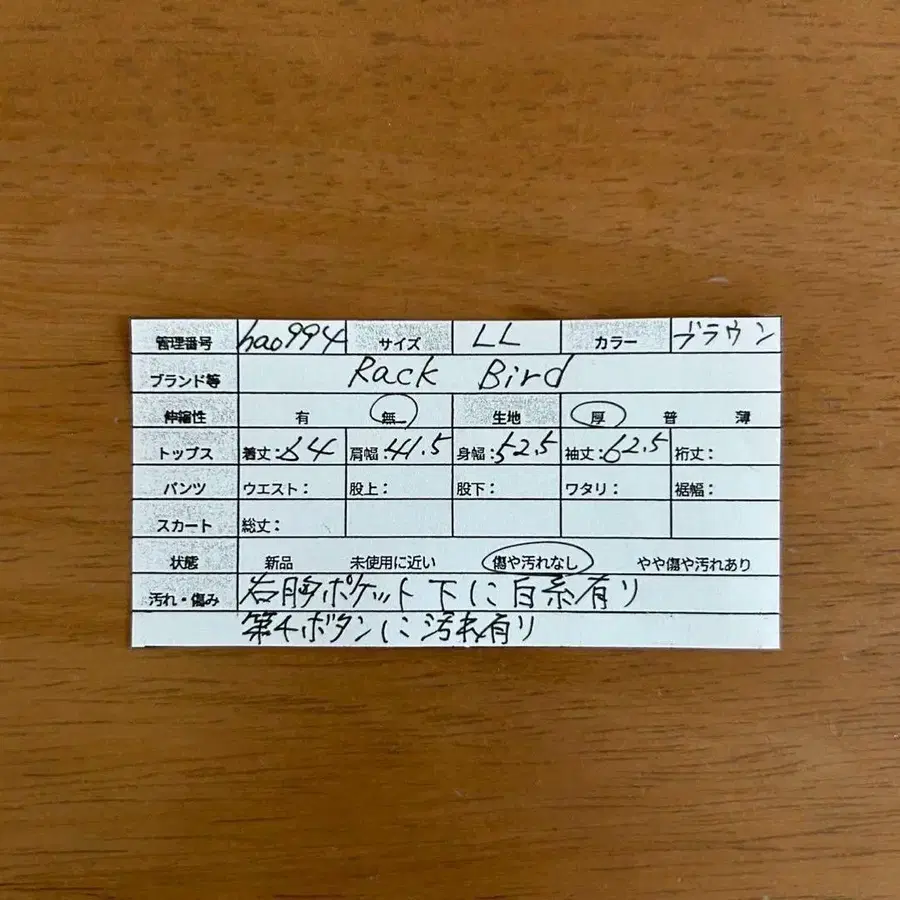 管理番号 hao994 サイズ LL カラー ブラウン
ブランド等 Rack Bird
伸縮性 有 無 生地 厚 普 薄
トップス 着丈:64 肩幅:41.5 身幅:52.5 袖丈:62.5 裄丈:
パンツ ウエスト: 股上: 股下: ワタリ: 裾幅:
スカート 総丈:
状態 新品 未使用に近い 傷や汚れなし やや傷や汚れあり
汚れ・傷み 右胸ポケット下に白糸有り
第4ボタンに汚れ有り